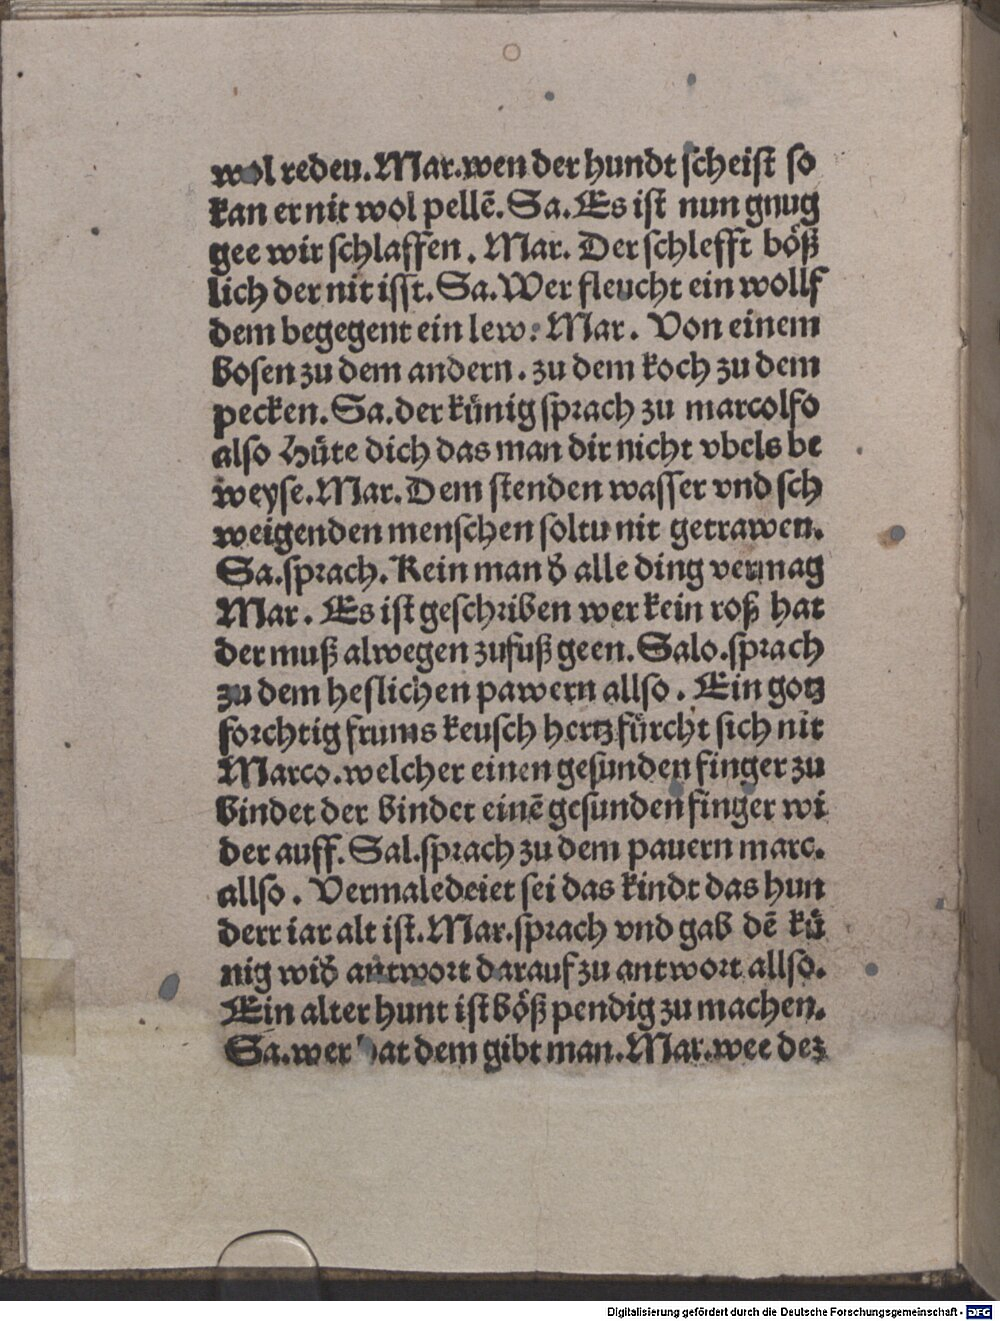 wol redeu. Mar. wen der hundt scheist so
kan er nit wol pellē. Sa. Es ist nun gnug
gee wir schlaffen. Mar. Der schlefft böß
lich der nit isst. Sa. Wer fleucht ein wollf
dem begegent ein lew. Mar. Von einem
bosen zu dem andern. zu dem koch zu dem
pecken. Sa. der künig sprach zu marcolfo
also Hüte dich das man dir nicht vbels be
weyse. Mar. Dem stenden wasser vnd sch
weigenden menschen soltu nit getrawen.
Sa. sprach. Kein man d̄ alle ding vermag
Mar. Es ist geschriben wer kein roß hat
der muß alwegen zufuß geen. Salo. sprach
zu dem heslichen pawern allso. Ein gotz
forchtig frums keusch hertz fürcht sich nit
Marco. welcher einen gesunden finger zu
bindet der bindet einē gesunden finger wi
der auff. Sal. sprach zu dem pauern marc.
allso. Vermaledeiet sei das kindt das hun
derr iar alt ist. Mar. sprach vnd gab dē kü
nig wid̄ antwort darauf zu antwort allso.
Ein alter hunt ist böß pendig zu machen.
Sa. wer hat dem gibt man. Mar. wee dez
Digitalisierung gefördert durch die Deutsche Forschungsgemeinschaft - DFG